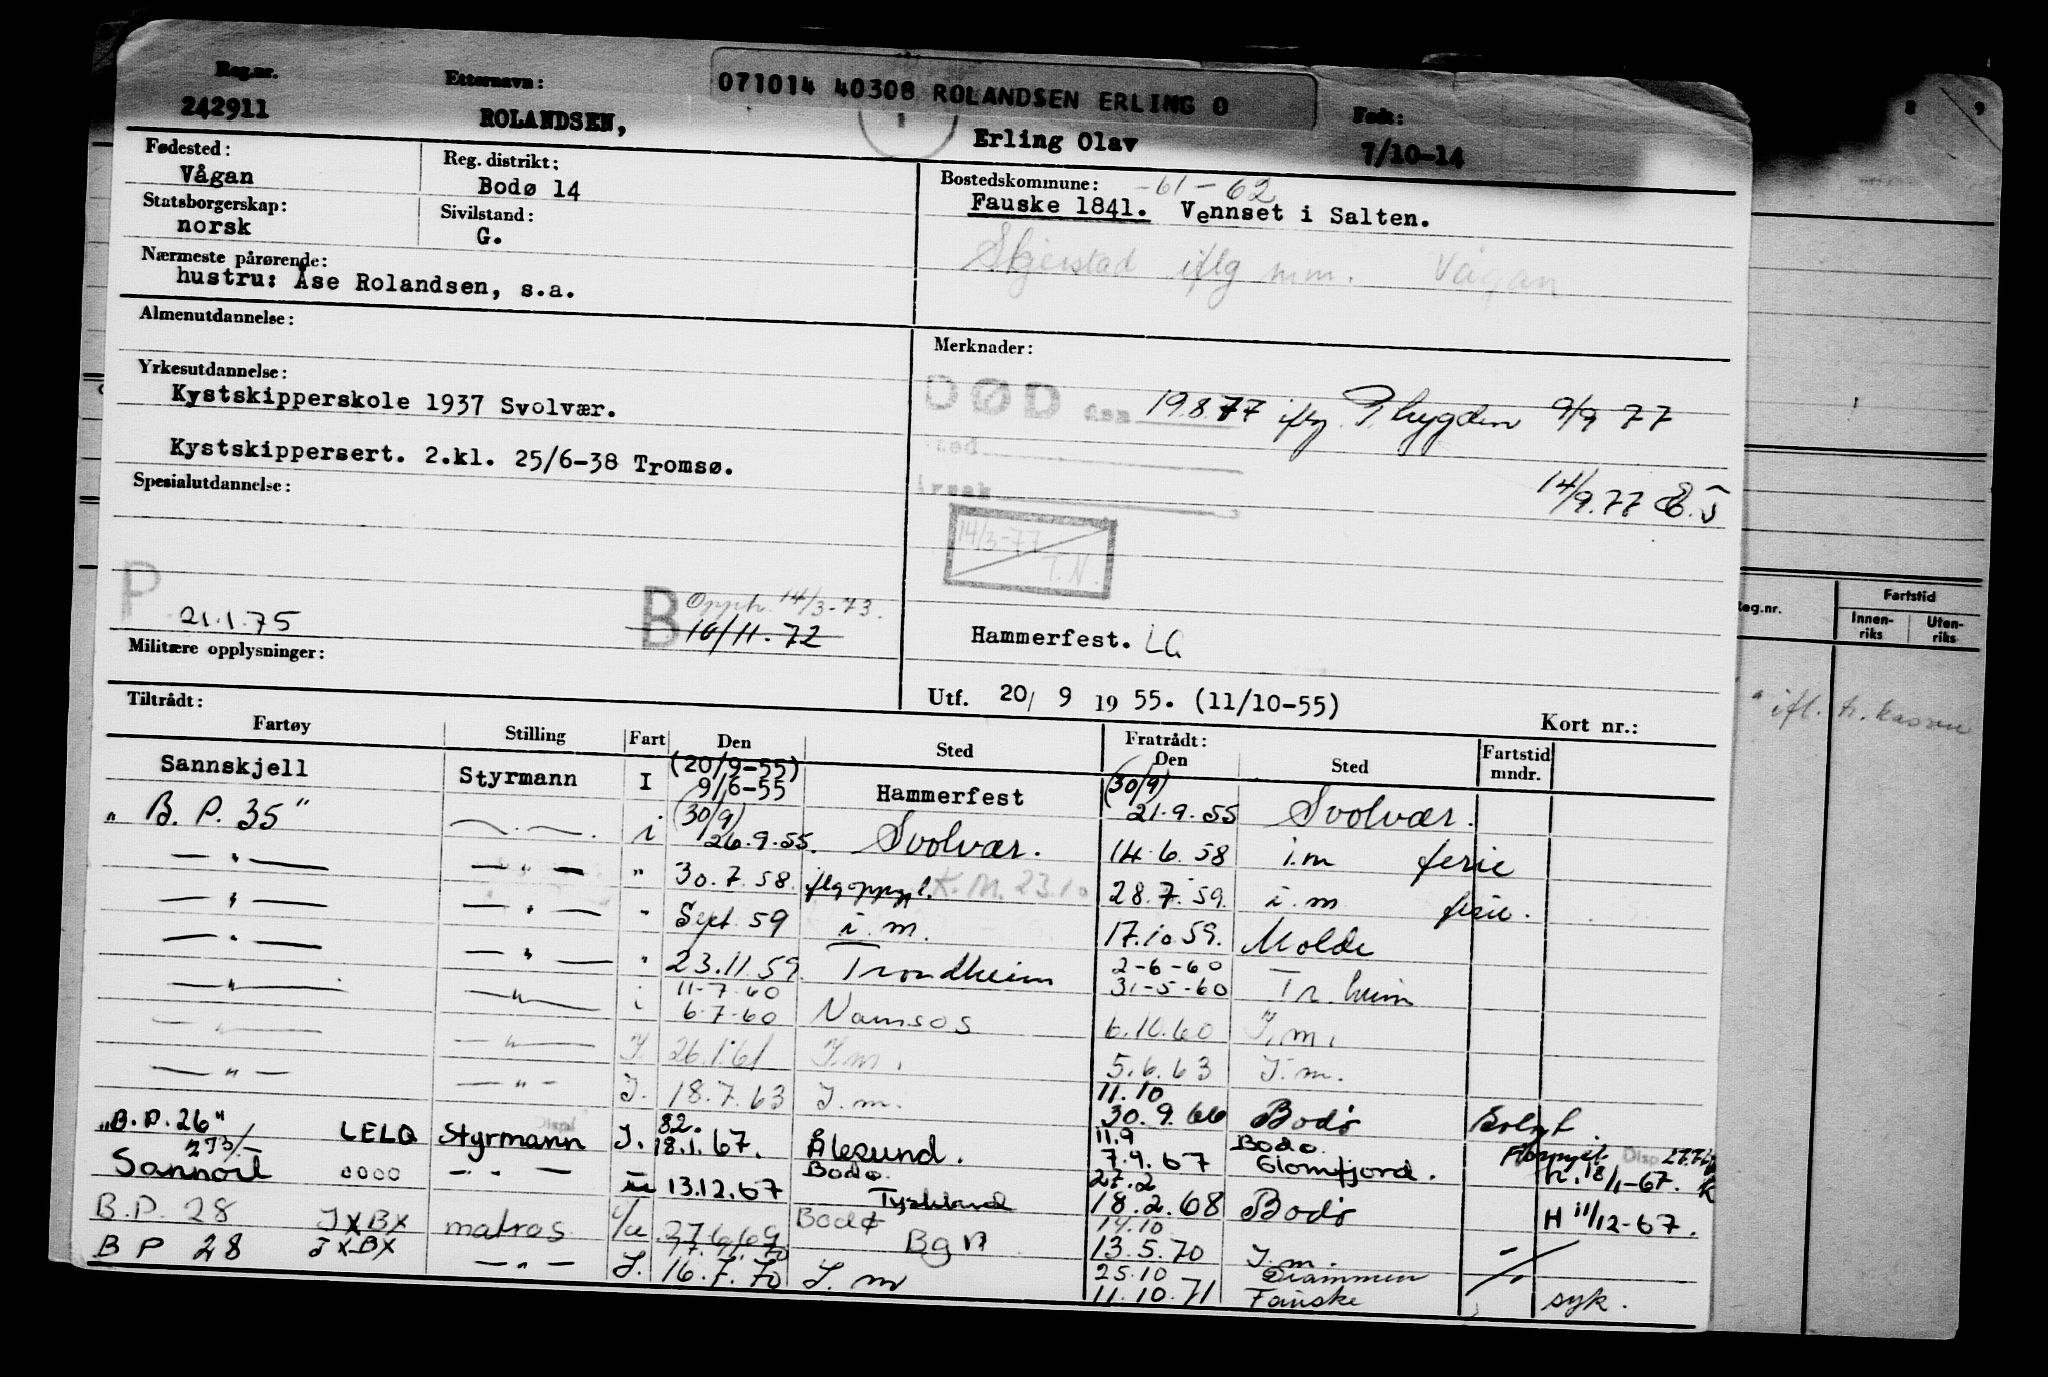 071014 40308 ROLANDSEN ERLING O
Reg.nr. Etternavn: Født:
242911 ROLANDSEN, Erling Olav 7/10-14
8 9
Fødested: Reg. distrikt: Bostedskommune: -61-62
Vågan Bodø 14 Fauske 1841. Vennset i Salten.
Statsborgerskap: Sivilstand:
norsk G.
Skjerstad iflg mm. Vågan
Nærmeste pårørende:
hustru: Åse Rolandsen, s.a.
Almenutdannelse:
Merknader:
Yrkesutdannelse:
Kystskipperskole 1937 Svolvær.
DØD den 19.8.77 iflg. P. trygden 9/9 77
Kystskippersert. 2.kl. 25/6-38 Tromsø.
Sted
Årsak 14/9.77
Spesialutdannelse:
14/3-77
T.N.
P B Opph. 14/3-73.
21.1.75 16/11.72
Hammerfest. LG
Militære opplysninger:
Utf. 20/ 9 1955. (11/10-55)
Kort nr.:
Reg.nr. Fartstid
Innen-riks Uten-riks
ifl. tr. kasse
Tiltrådt: Fratrådt:
Fartøy Stilling Fart Den Sted Den Sted Fartstid mndr.
Sannskjell Styrmann I (20/9-55) 9/6-55 Hammerfest (30/9) 21.9.55 Svolvær.
" B. P. 35" —.—. i (30/9) 26.9.55. Svolvær. 14.6.58 i.m ferie
— " — — " — " 30.7.58. iflg oppg. K.M. 23.10 28.7.59. i.m ferie.
— " — — " — " Sept. 59 i.m. 17.10.59. Molde
— " — — " — " 23.11.59. Trondheim 2-6-60 31-5-60 Tr.heim
— " — — " — i 11-7-60 6-7-60 Namsos 6.10.60 I.m.
— " — — " — I. 26.1.61 I.m. 5.6.63 I.m.
— " — — " — I. 18.7.63 I.m. 11.10 30.9.66 Bodø
"B.P. 26" LELQ Styrmann I. 18.1.67. Ålesund. 11.9 7.9.67 Bodø Glomfjord. 18/1-67.
273/-
Sannoil OOOO —.— 13.12.67 Bodø Tyskland 27.2 18.2.68 Bodø H 11/12-67.
B.P. 28 JXBX matros I/u 27.6.69 Bodø Bgn 14.10 13.5.70 I.m.
B P 28 JXBX —.— I. 16.7.70 I.m 25.10 11.10.71 Drammen Fauske syk.